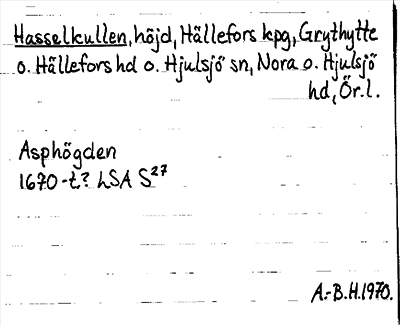 Hasselkullen, höjd, Hällefors kpg, Grythytte
o. Hällefors hd o. Hjulsjö sn, Nora o. Hjulsjö
hd, Ör. l.
Asphögden
1670-t.? LSA S27
A.-B.H. 1970.